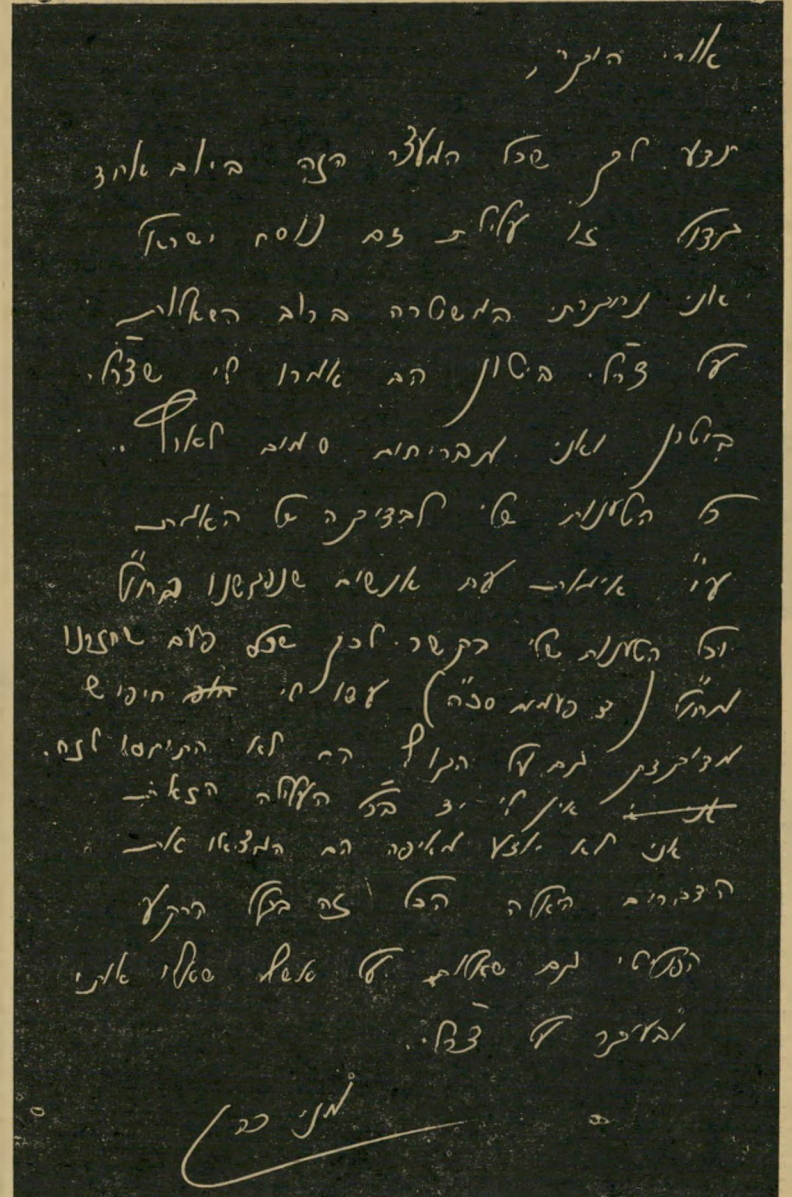 אורי היקר,
תדע לך שכל המעצר הזה ביום אחד
גדול זו עלילת דם נוסח ישראל
אני נחקרתי במשטרה ברוב השאלות
על צ'רלי ביטון הם אמרו לי שצ'רלי
ביטון ואני מבריחים סמים לארץ..
כל הטענות שלי לבדיקה של האמת
ע"י אימות עם אנשים שנפגשנו בחו"ל
וכל הטענות שלי בקשר לכך שכל פעם שחזרנו
מחו"ל (3 פעמים סה"כ) עשו לי חיפוש
מדוקדק גם על הגוף הם לא התיחסו לזה.
אין לי יד בכל העלילה הזאת
אני לא יודע מאיפה הם המציאו את
הדברים האלה הכל זה בגלל הרקע
הפוליטי גם שאלות על אש"ף שאלו אותי
ובעיקר על צ'רלי..
מני כהן